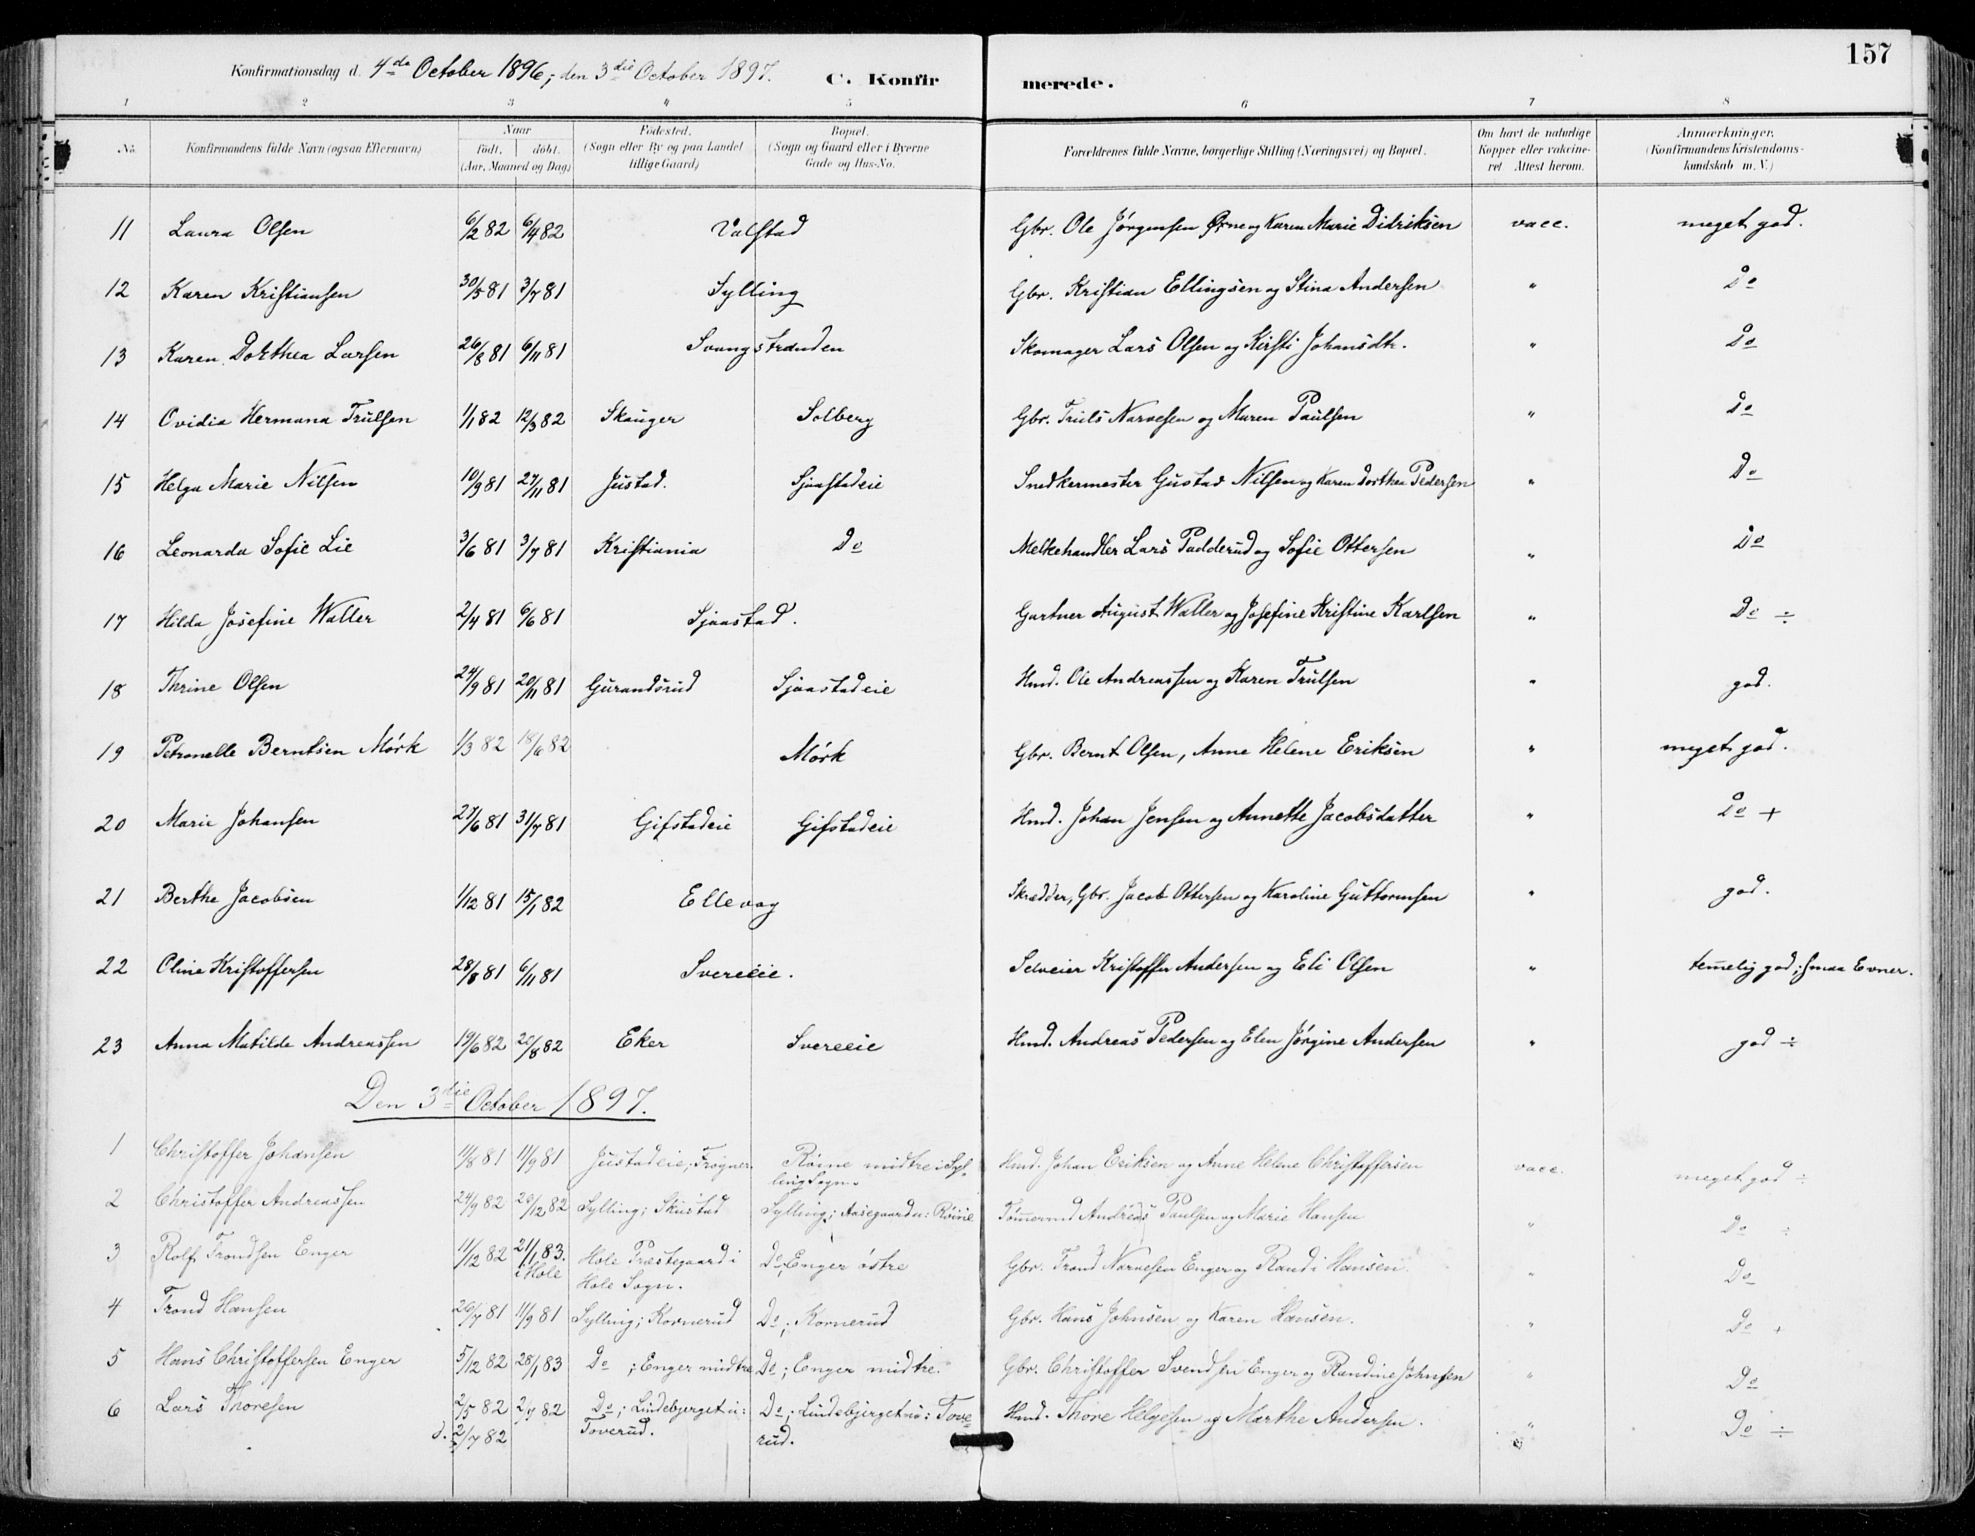 157
Konfirmationsdag d. 4de October 1896; den 3die October 1897. C. Konfir merede.
1 2 3 4 5 6 7 8
No. Konfirmandens fulde Navn (ogsaa Efternavn) Naar født. døbt. (Aar, Maaned og Dag) Fødested. (Sogn eller By og paa Landet tillige Gaard) Bopæl. (Sogn og Gaard eller i Byerne Gade og Hus-No. Forældrenes fulde Navne, borgerlige Stilling (Næringsvei) og Bopæl. Om havt de naturlige Kopper eller vakcineret Attest herom. Anmerkninger. (Konfirmandens Kristendomskundskab m. V.)
11 Laura Olsen 6/2 82 6/4 82 Valstad Gbr. Ole Jørgensen Ørne og Karen Marie Didriksen vacc. meget god.
12 Karen Kristiansen 30/5 81 3/7 81 Sylling Gbr. Kristian Ellingsen og Stina Andersen " Do
13 Karen Dorthea Larsen 26/8 81 6/11 81 Svangstranden Skomager Lars Olsen og Kirsti Johansdtr. " Do
14 Ovidia Hermana Trulsen 1/1 82 12/3 82 Skauger Solberg Gbr. Truls Narvesen og Maren Paulsen " Do
15 Helga Marie Nilsen 10/9 81 27/11 81 Justad. Sjaastadeie Snedkermester Gustav Nilsen og Karen Dorthea Pedersen " Do
16 Leonarda Sofie Lie 3/6 81 3/7 81 Kristiania Do Melkehandler Lars Padderud og Sofie Ottersen " Do
17 Hilda Josefine Waller 2/4 81 6/6 81 Sjaastad. Gartner August Waller og Josefine Kristine Karlsen " Do ÷
18 Thrine Olsen 24/9 81 20/11 81 Gurandsrud Sjaastadeie Hmd. Ole Andreassen og Karen Trulsen " god.
19 Petronelle Berntsen Mörk 1/3 82 18/6 82 Mörk Gbr. Bernt Olsen, Anne Helene Eriksen " meget god.
20 Marie Johansen 27/6 81 31/7 81 Gifstadeie Gifstadeie Hmd. Johan Jensen og Annette Jacobsdatter " Do +
21 Berthe Jacobsen 1/12 81 15/1 82 Ellevag Skrædder, Gbr. Jacob Ottersen og Karoline Guttormsen " god.
22 Oline Kristoffersen 28/8 81 6/11 81 Svereeie. Selveier Kristoffer Andersen og Eli Olsen " temelig god; smaa Evner.
23 Anna Matilde Andreassen 19/6 82 20/8 82 Eker Svereeie Hmd. Andreas Pedersen og Elen Jörgine Andersen " god ÷
Den 3die October 1897.
1 Christoffer Johansen 11/8 81 11/9 81 Justadeie, Frogner. Røine midtre i Syl-
ling Sogn. Hmd. Johan Eriksen og Anne Helene Christoffersen vacc. meget god ÷
2 Christoffer Andreassen 24/9 82 26/12 82 Sylling; Skustad Sylling; Aasegaarden: Røine Tømermd Andreas Paulsen og Marie Hansen " Do ÷
3 Rolf Trondsen Enger 11/12 82 21/1 83. Hole Præstegaard i Do; Enger østre Gbr. Trond Narvesen Enger og Randi Hansen. " Do
i Hole Hole Sogn.
4 Trond Hansen 26/7 81 11/9 81 Sylling; Kornerud Do; Kornerud Gbr. Hans Johnsen og Karen Hansen. " Do +
5 Hans Christoffersen Enger 5/12 82 28/1 83 Do ; Enger midtre Do; Enger midtre. Gbr. Christoffer Svendsen Enger og Randine Johnsen " Do
6 Lars Thoresen 2/5 82 2/7 82 Do; Lindebjerget u: Do; Lindebjerget u: Tove- Hmd. Thore Helgesen og Marthe Andersen. " Do ÷
d. 2/7 82 Toverud. rud.